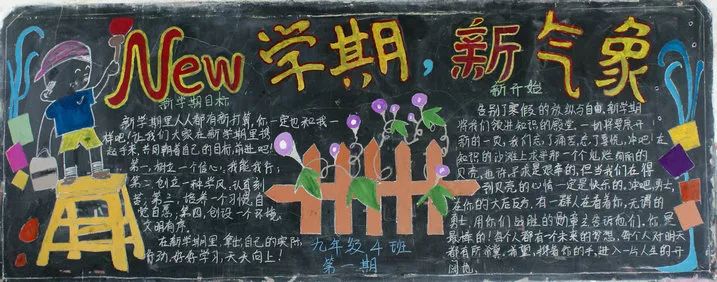 New学期，新气象
新学期目标
新学期里人人都有新打算，你一定也和我一
样吧！让我们大家在新学期里携
起手来，共同朝着自己的目标，前进吧！
第一，树立一个信心，我能我行；
第二，创立一种学风，认真刻
苦；第三，培养一个习惯，自
觉自愿；第四，创设一个环境，
文明有序。
在新学期里，拿出自己的实际
行动，好好学习，天天向上！
九年级4班
第一期
新开始
告别了寒假的放纵与自由，新学期
将我们领进知识的殿堂，一切将要展开
新的一页，我们忘了痛苦，忘了曾经，冲吧！在
知识的沙滩上寻非那一个个灿烂 的
贝壳，也许寻求是艰辛的，但当我们在得
到贝壳的心情一定是快乐的，冲吧，勇士，
在你的大后方，有一群人在看着你，无谓的
勇士，用你们战胜的勋章去告诉他们，你是
最棒的！每个人都有一个未来的梦想，每个人对明天
都有所 ，希望，携着你的手，进入一片人生的开
阔地。